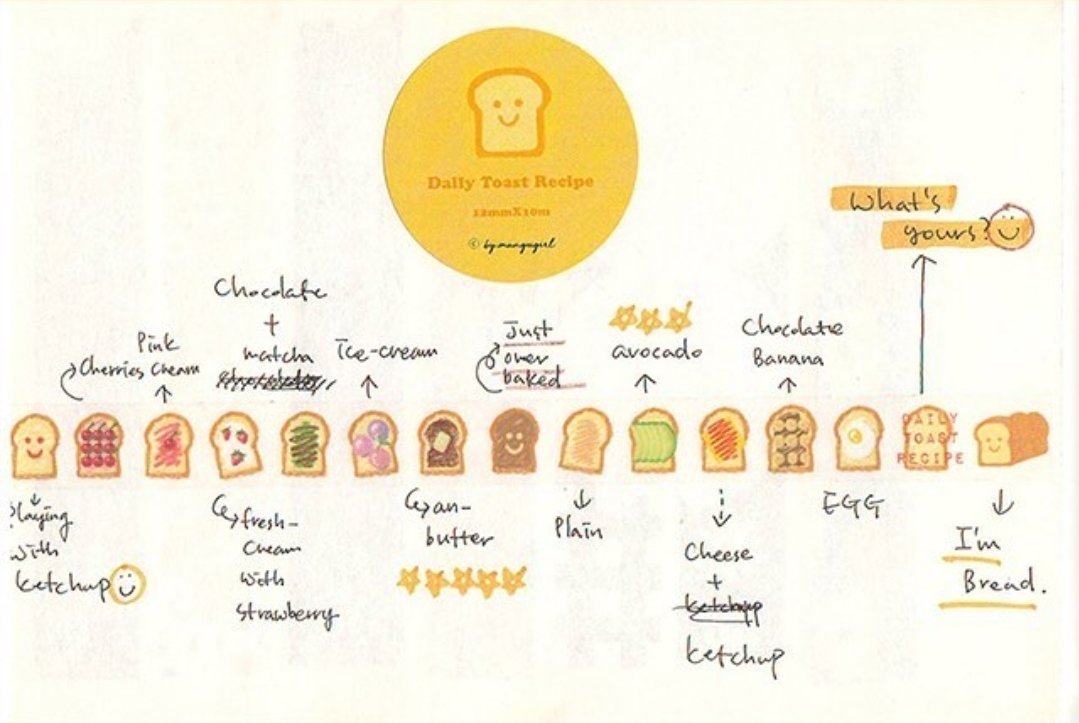 Daily Toast Recipe
12mmX10m
© by.mangugirl
What's
yours?
Chocolate
+
matcha
Pink
Cream
Cherries
Ice-cream
Just
over
baked
avocado
Chocolate
Banana
DAILY
TOAST
RECIPE
Playing
with
ketchup
fresh-
cream
with
strawberry
an-
butter
Plain
Cheese
+
ketchup
ketchup
EGG
I'm
Bread.